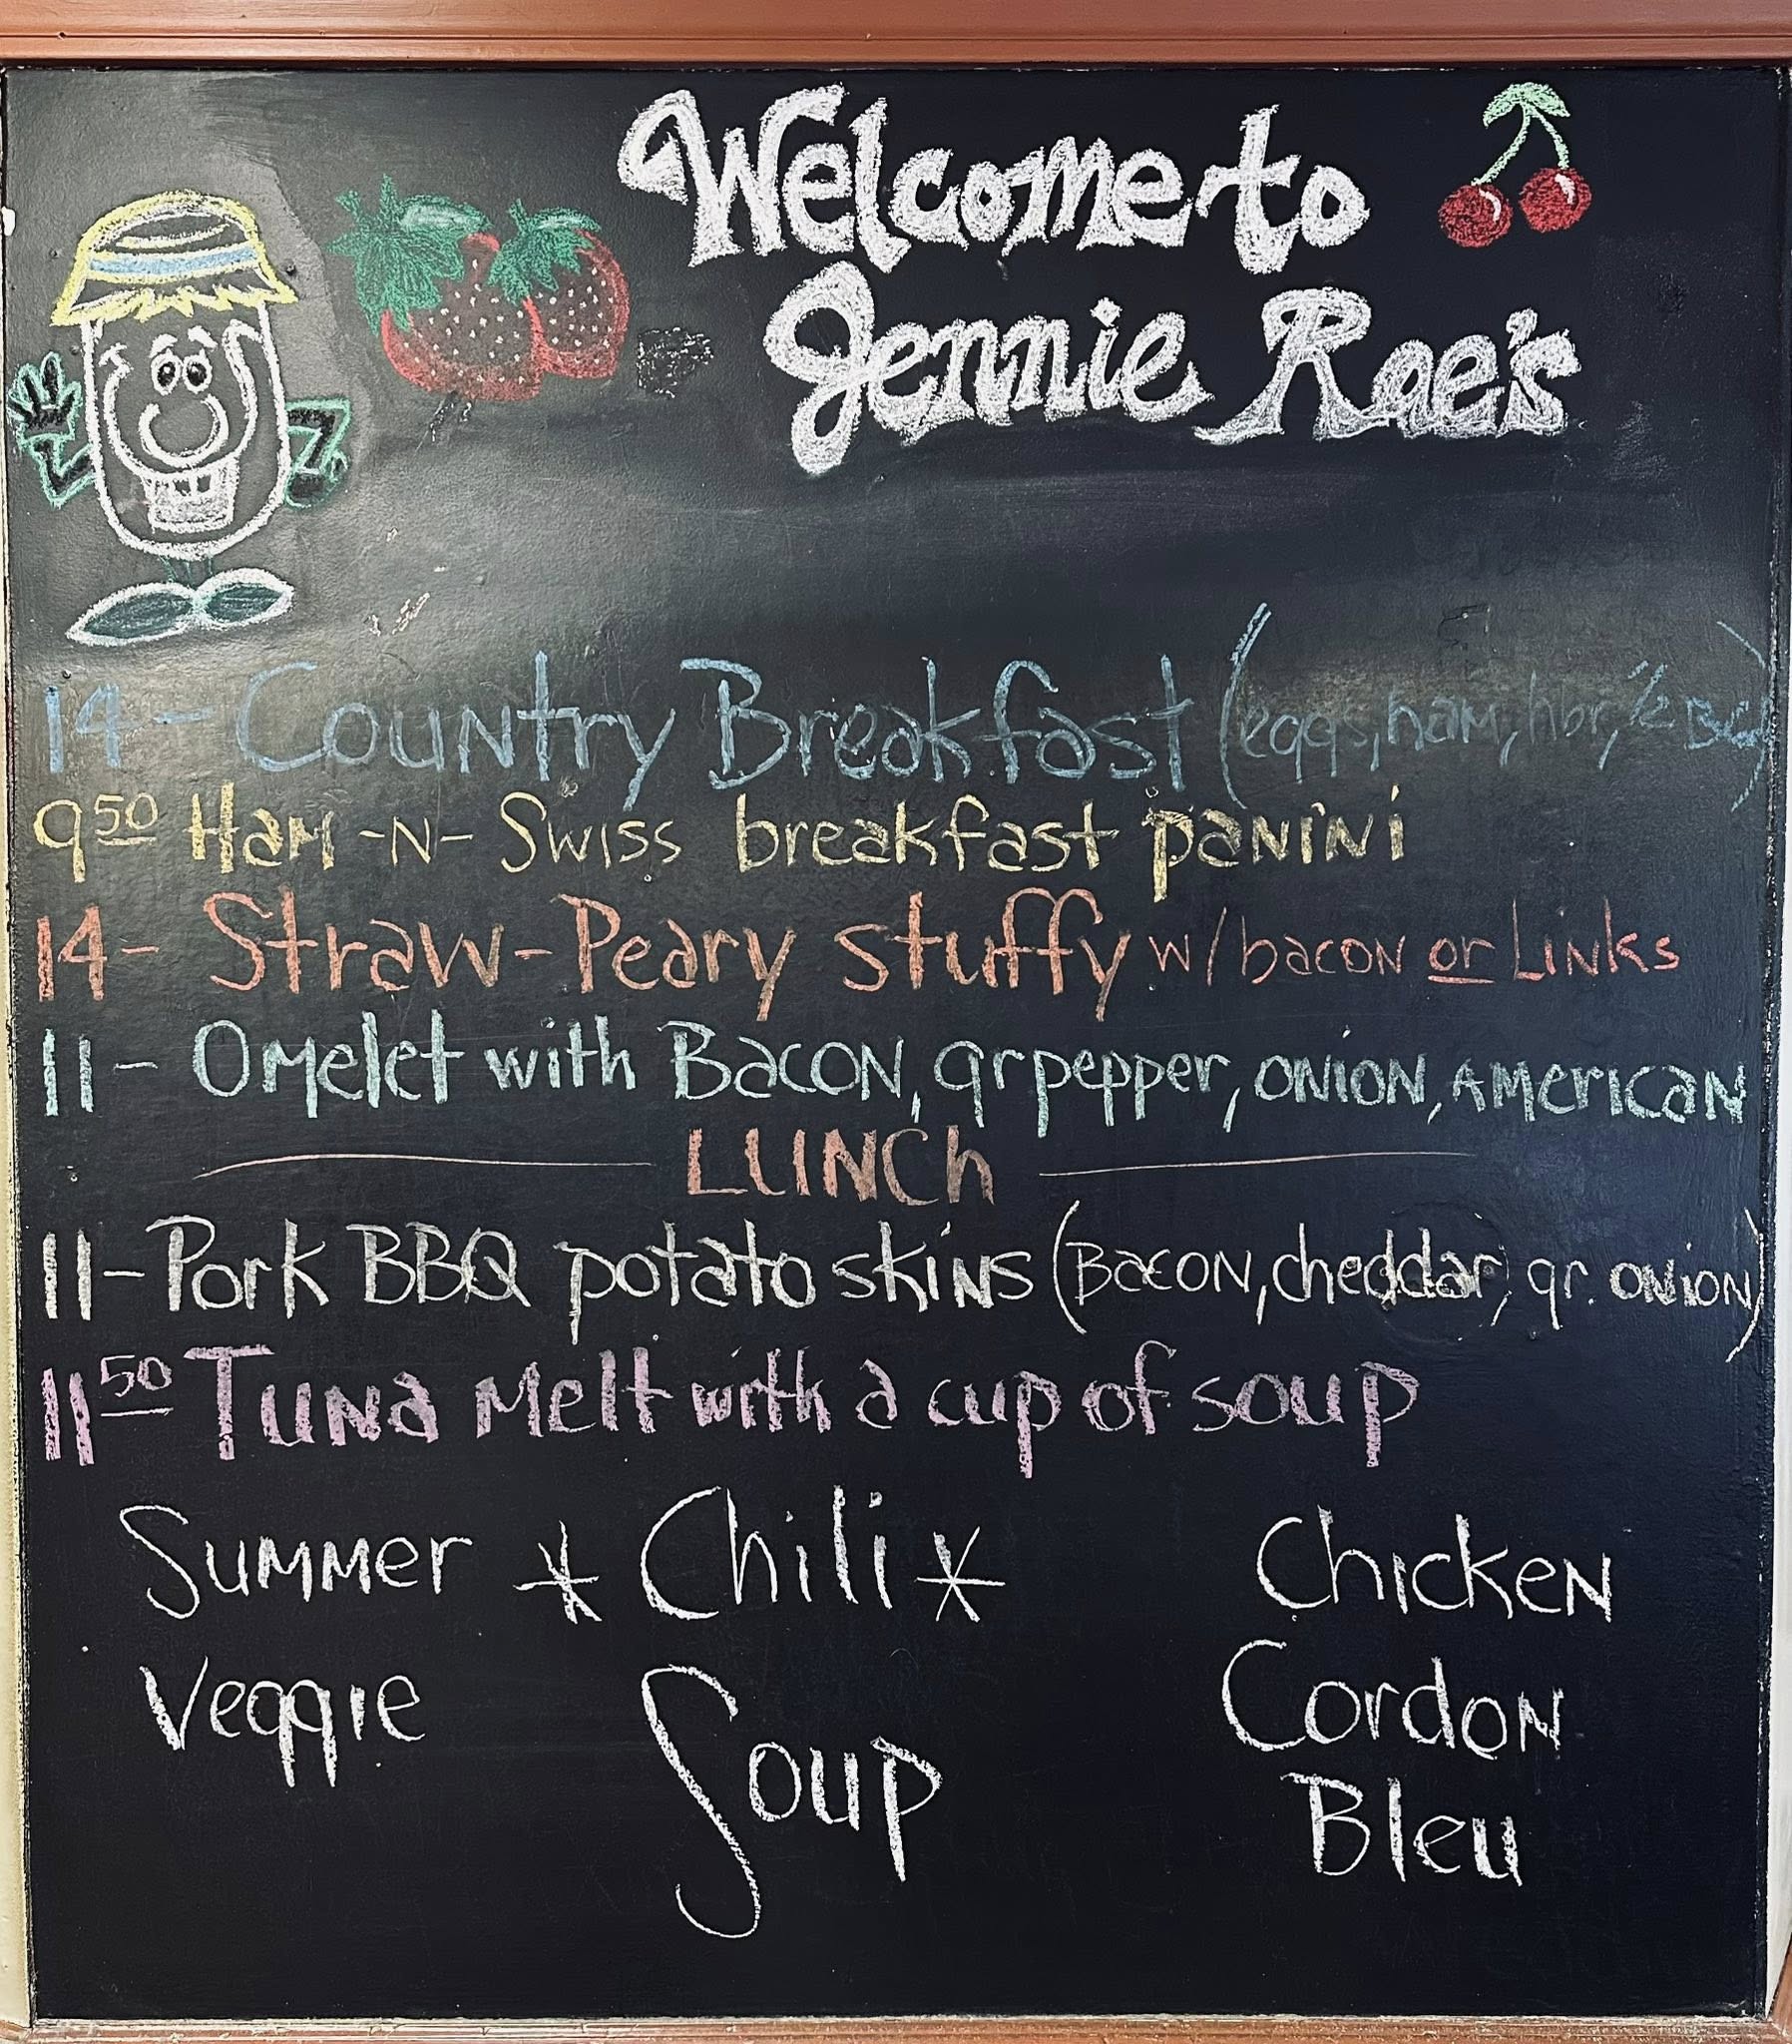 Welcome to
Jennie Rae's
14- Country Breakfast (eggs, ham, hbr, 1/2 BG)
9 50 Ham -N- Swiss breakfast panini
14- Straw-Peary stuffy w/ bacon or Links
11- Omelet with Bacon, gr pepper, onion, American
LUNCh
11- Pork BBQ potato skins (Bacon, cheddar, gr. onion)
11 50 Tuna Melt with a cup of soup
Summer * Chili * Chicken
Veggie Soup Cordon
Bleu